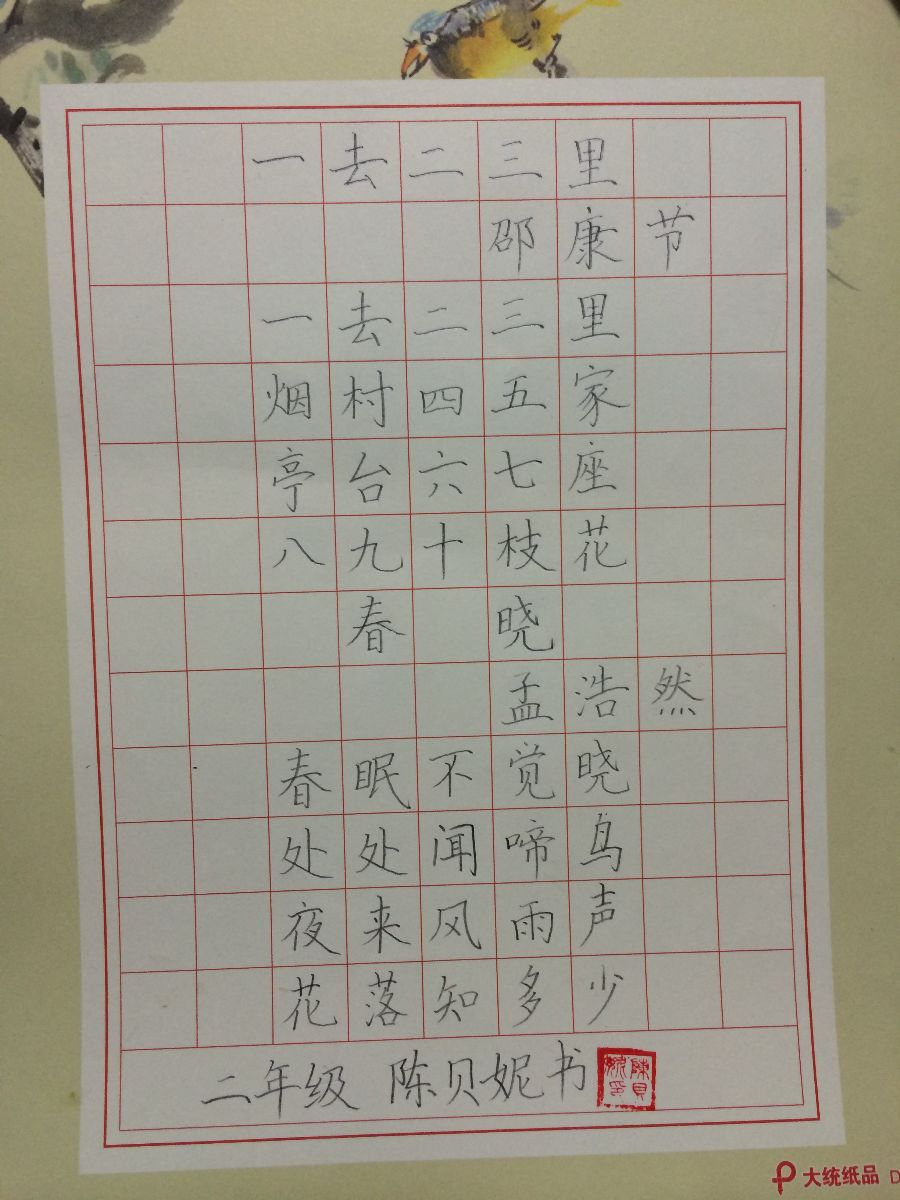 一去二三里
邵康节
一去二三里
烟村四五家
亭台六七座
八九十枝花
春晓
孟浩然
春眠不觉晓
处处闻啼鸟
夜来风雨声
花落知多少
二年级 陈贝妮书
大统纸品 D